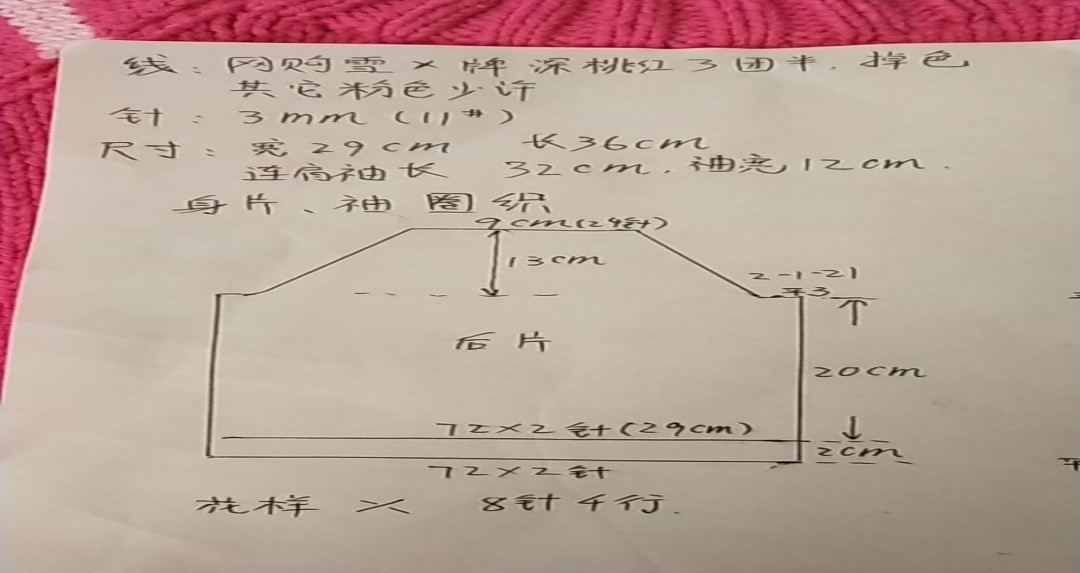 线：网购雪×牌深桃红3团半．撑色
其它粉色少许
针：3mm(11#)
尺寸：宽29cm 长36cm
连肩袖长 32cm．袖宽12cm．
身片、袖圈织
9cm(24针)
13cm
2-1-21
平3
后片
20cm
72×2针(29cm)
2cm
72×2针
花样 × 8针4行．